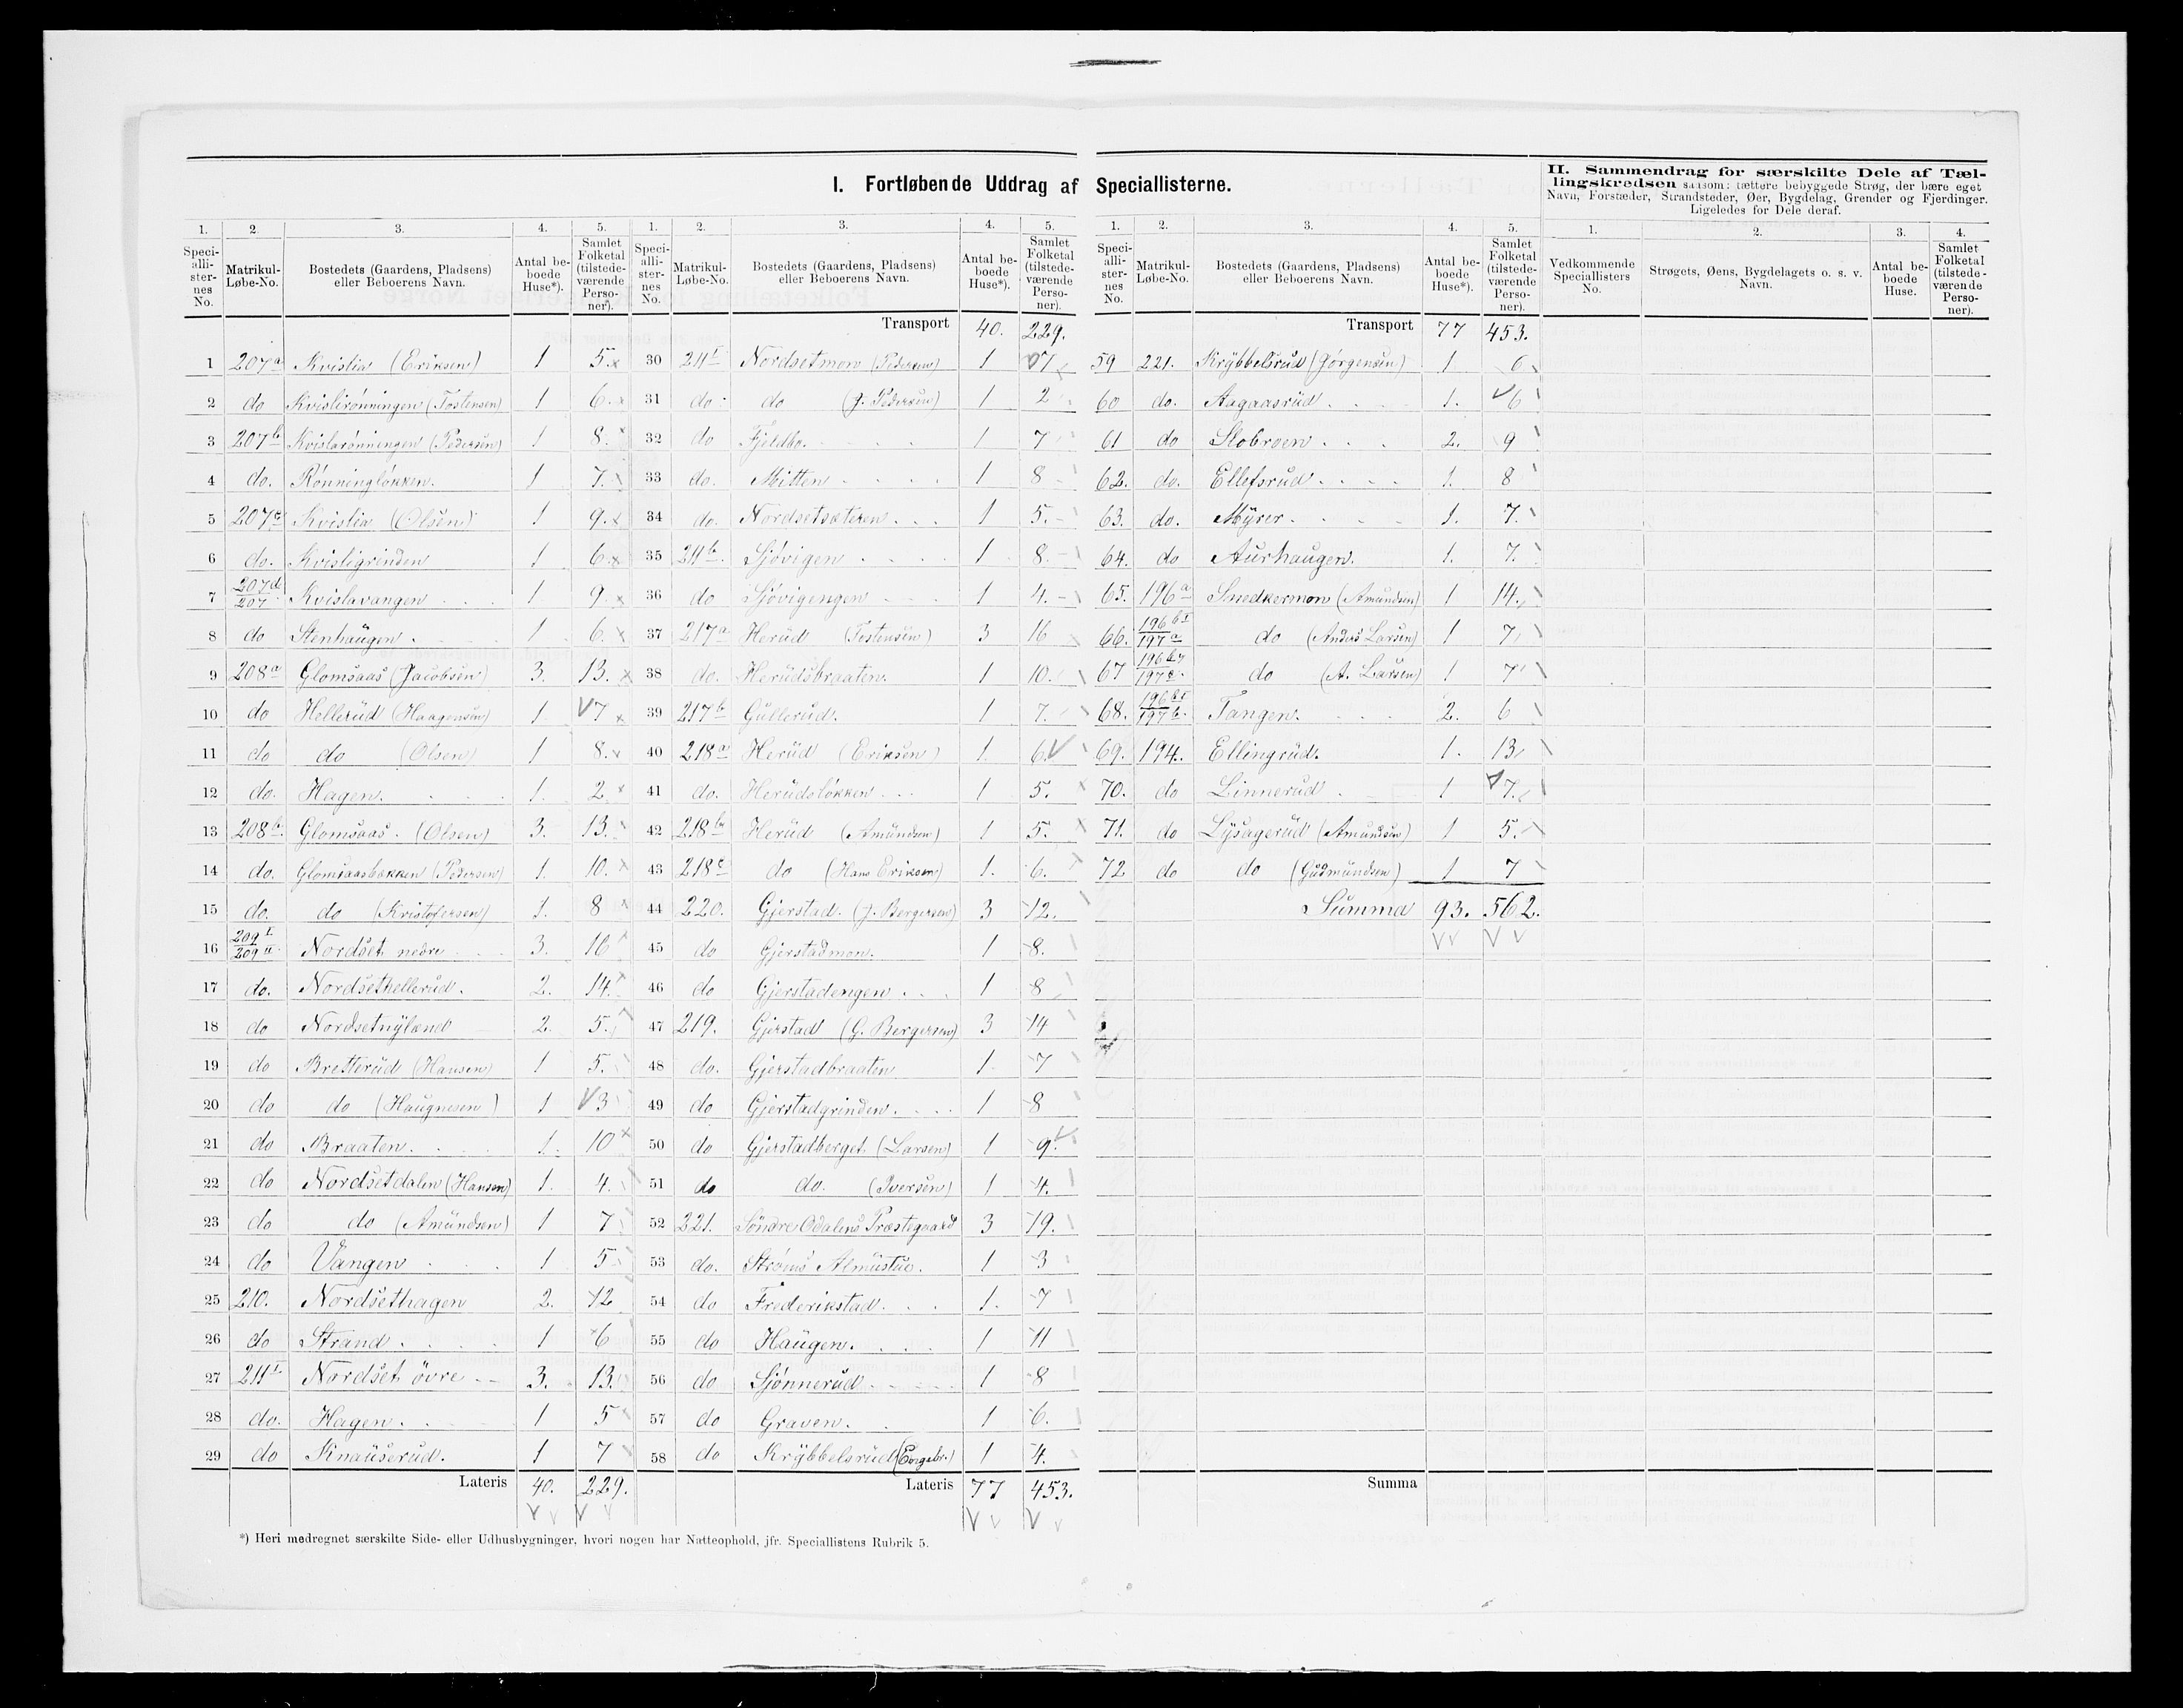 I. Fortløbende Uddrag af Speciallisterne.
II. Sammendrag for særskilte Dele af Tæl-
lingskredsen saasom: tættere bebyggede Strøg, der bære eget
Navn, Forstæder, Strandsteder, Øer, Bygdelag, Grender og Fjerdinger.
Ligeledes for Dele deraf.
1. 2. 3. 4. 5.
Speci-alli-ster-nes No. Matrikul-Løbe-No. Bostedets (Gaardens, Pladsens) eller Beboerens Navn. Antal be-boede Huse*). Samlet Folketal (tilstede-værende Perso-ner).
1 207a Kvislia (Eriksen) 1 5
2 do Kvislirønningen (Tostensen) 1 6
3 207b Kvislarønningen (Pedersen) 1 8
4 do. Rønningløkken. 1 7
5 207c Kvislia (Olsen) 1 9
6 do. Kvisligrinden 1 6
7 207d/207 Kvislavangen 1 9
8 do Stenhaugen 1 6
9 208a Glomsaas (Jacobsen) 3. 13.
10 do Hellerud (Haagensen) 1 7
11 do do (Olsen) 1 8
12 do. Hagen. 1. 2
13 208b Glomsaas. (Olsen) 3. 13.
14 do. Glomsaasbakken (Pedersen) 1. 10.
15 do. do (Kristofersen) 1. 8
16 209I/209II Nordset nedre 3. 16
17 do. Nordsethellerud. 2. 14.
18 do Nordsetnyland 2. 5.
19 do Bretterud (Hansen) 1 5.
20 do do (Haugnesen) 1 3
21 do Braaten. 1. 10
22 do Nordsetdalen (Hansen) 1. 4.
23 do do (Amundsen) 1 7
24 do Vangen 1 5
25 210. Nordsethagen 2. 12
26 do Strand 1 6
27 211I Nordset øvre 3. 13.
28 do. Hagen. 1 5
29 do Knauserud. 1 7
Lateris 40. 229.
1. 2. 3. 4. 5.
Speci-alli-ster-nes No. Matrikul-Løbe-No. Bostedets (Gaardens, Pladsens) eller Beboerens Navn. Antal be-boede Huse*). Samlet Folketal (tilstede-værende Perso-ner).
Transport 40. 229.
30 211I Nordsetmon (Pedersen) 1 7
31 do do (J. Pedersen) 1 2
32 do Fjeldbo. 1 7
33 do. Mitten 1 8
34 do. Nordsetsæteren 1 5.
35 211b Sjøvigen 1 8
36 do Sjøvigengen 1 4.
37 217a Herud (Tostensen) 3 16
38 do. Herudsbraaten. 1 10.
39 217b Gullerud. 1 7.
40 218a Herud (Eriksen) 1. 6
41 do. Herudsløkken 1 5.
42 218b Herud (Amundsen) 1 5.
43 218c do (Hans Eriksen) 1. 6.
44 220. Gjerstad. (J. Bergersen) 3 12.
45 do Gjerstadmon. 1 8.
46 do Gjerstadengen 1 8
47 219. Gjerstad (G. Bergersen) 3 14
48 do. Gjerstadbraaten 1. 7
49 do Gjerstadgrinden. 1 8
50 do Gjerstadberget (Larsen) 1 9.
51 do do. (Iversen) 1 4.
52 221. Søndre Odalens Præstegaard 3 19.
53 do. Strøms Almustue. 1 3
54 do Frederikstad. 1. 7
55 do Haugen. 1 11
56 do Sjønnerud 1 8
57 do Graven. 1 6.
58 do Krybbelsrud (Engebr.) 1 4.
Lateris 77 453.
1. 2. 3. 4. 5.
Speci-alli-ster-nes No. Matrikul-Løbe-No. Bostedets (Gaardens, Pladsens) eller Beboerens Navn. Antal be-boede Huse*). Samlet Folketal (tilstede-værende Perso-ner).
Transport 77 453.
59 221. Krybbelsrud (Jørgensen) 1 6
60 do. Aagaasrud 1. 6
61 do Slobroen 2. 9
62. do. Ellefsrud 1. 8
63. do. Myrer 1. 7.
64. do Aurhaugen. 1. 7.
65. 196a Snedkermon (Amundsen) 1 14.
66. 196bI/197a do (Anders Larsen) 1 7
67 do (A. Larsen) 1 7
68. 196bI/197b Tangen. 2. 6
69. 194. Ellingrud. 1. 13
70. do Linnerud 1 7.
71. do Lysagerud (Amundsen) 1 5.
72 do do (Gudmundsen) 1 7
Summa 93. 562.
Summa
1. 2. 3. 4.
Vedkommende Speciallisters No. Strøgets, Øens, Bygdelagets o. s. v. Navn. Antal be-boede Huse. Samlet Folketal (tilstede-værende Perso-ner).
*) Heri medregnet særskilte Side- eller Udhusbygninger, hvori nogen har Natteophold, jfr. Speciallistens Rubrik 5.